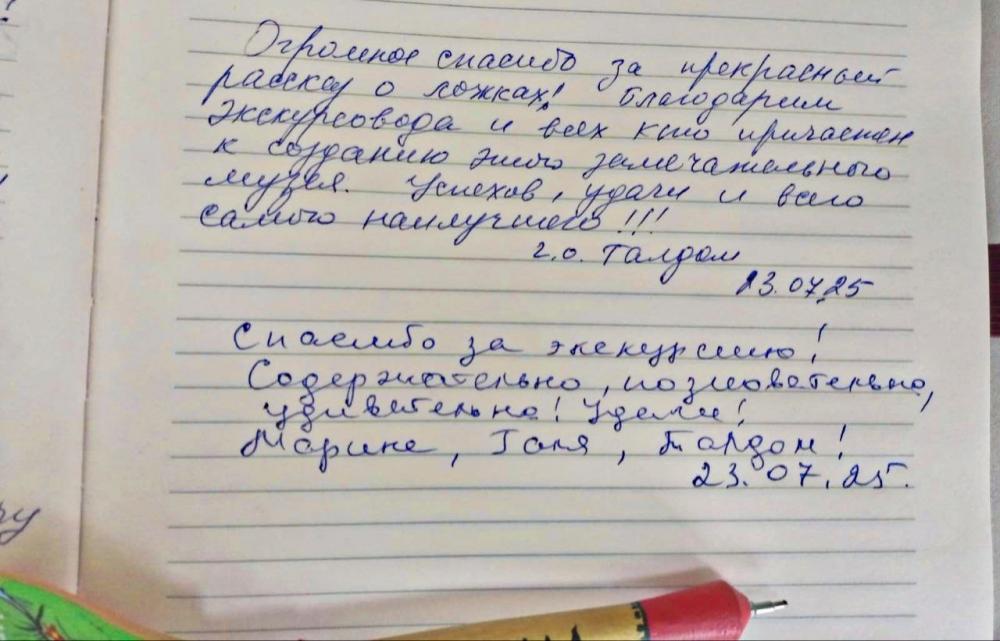 Огромное спасибо за прекрасный
рассказ о ложках! Благодарим
экскурсовода и всех кто причастен
к созданию этого замечательного
музея. Успехов, удачи и всего
самого наилучшего!!!
г.о. Талдом
23.07.25
Спасибо за экскурсию!
Содержательно, познавательно,
удивительно!
Марина, Галя, Талдом!
23.07.25.